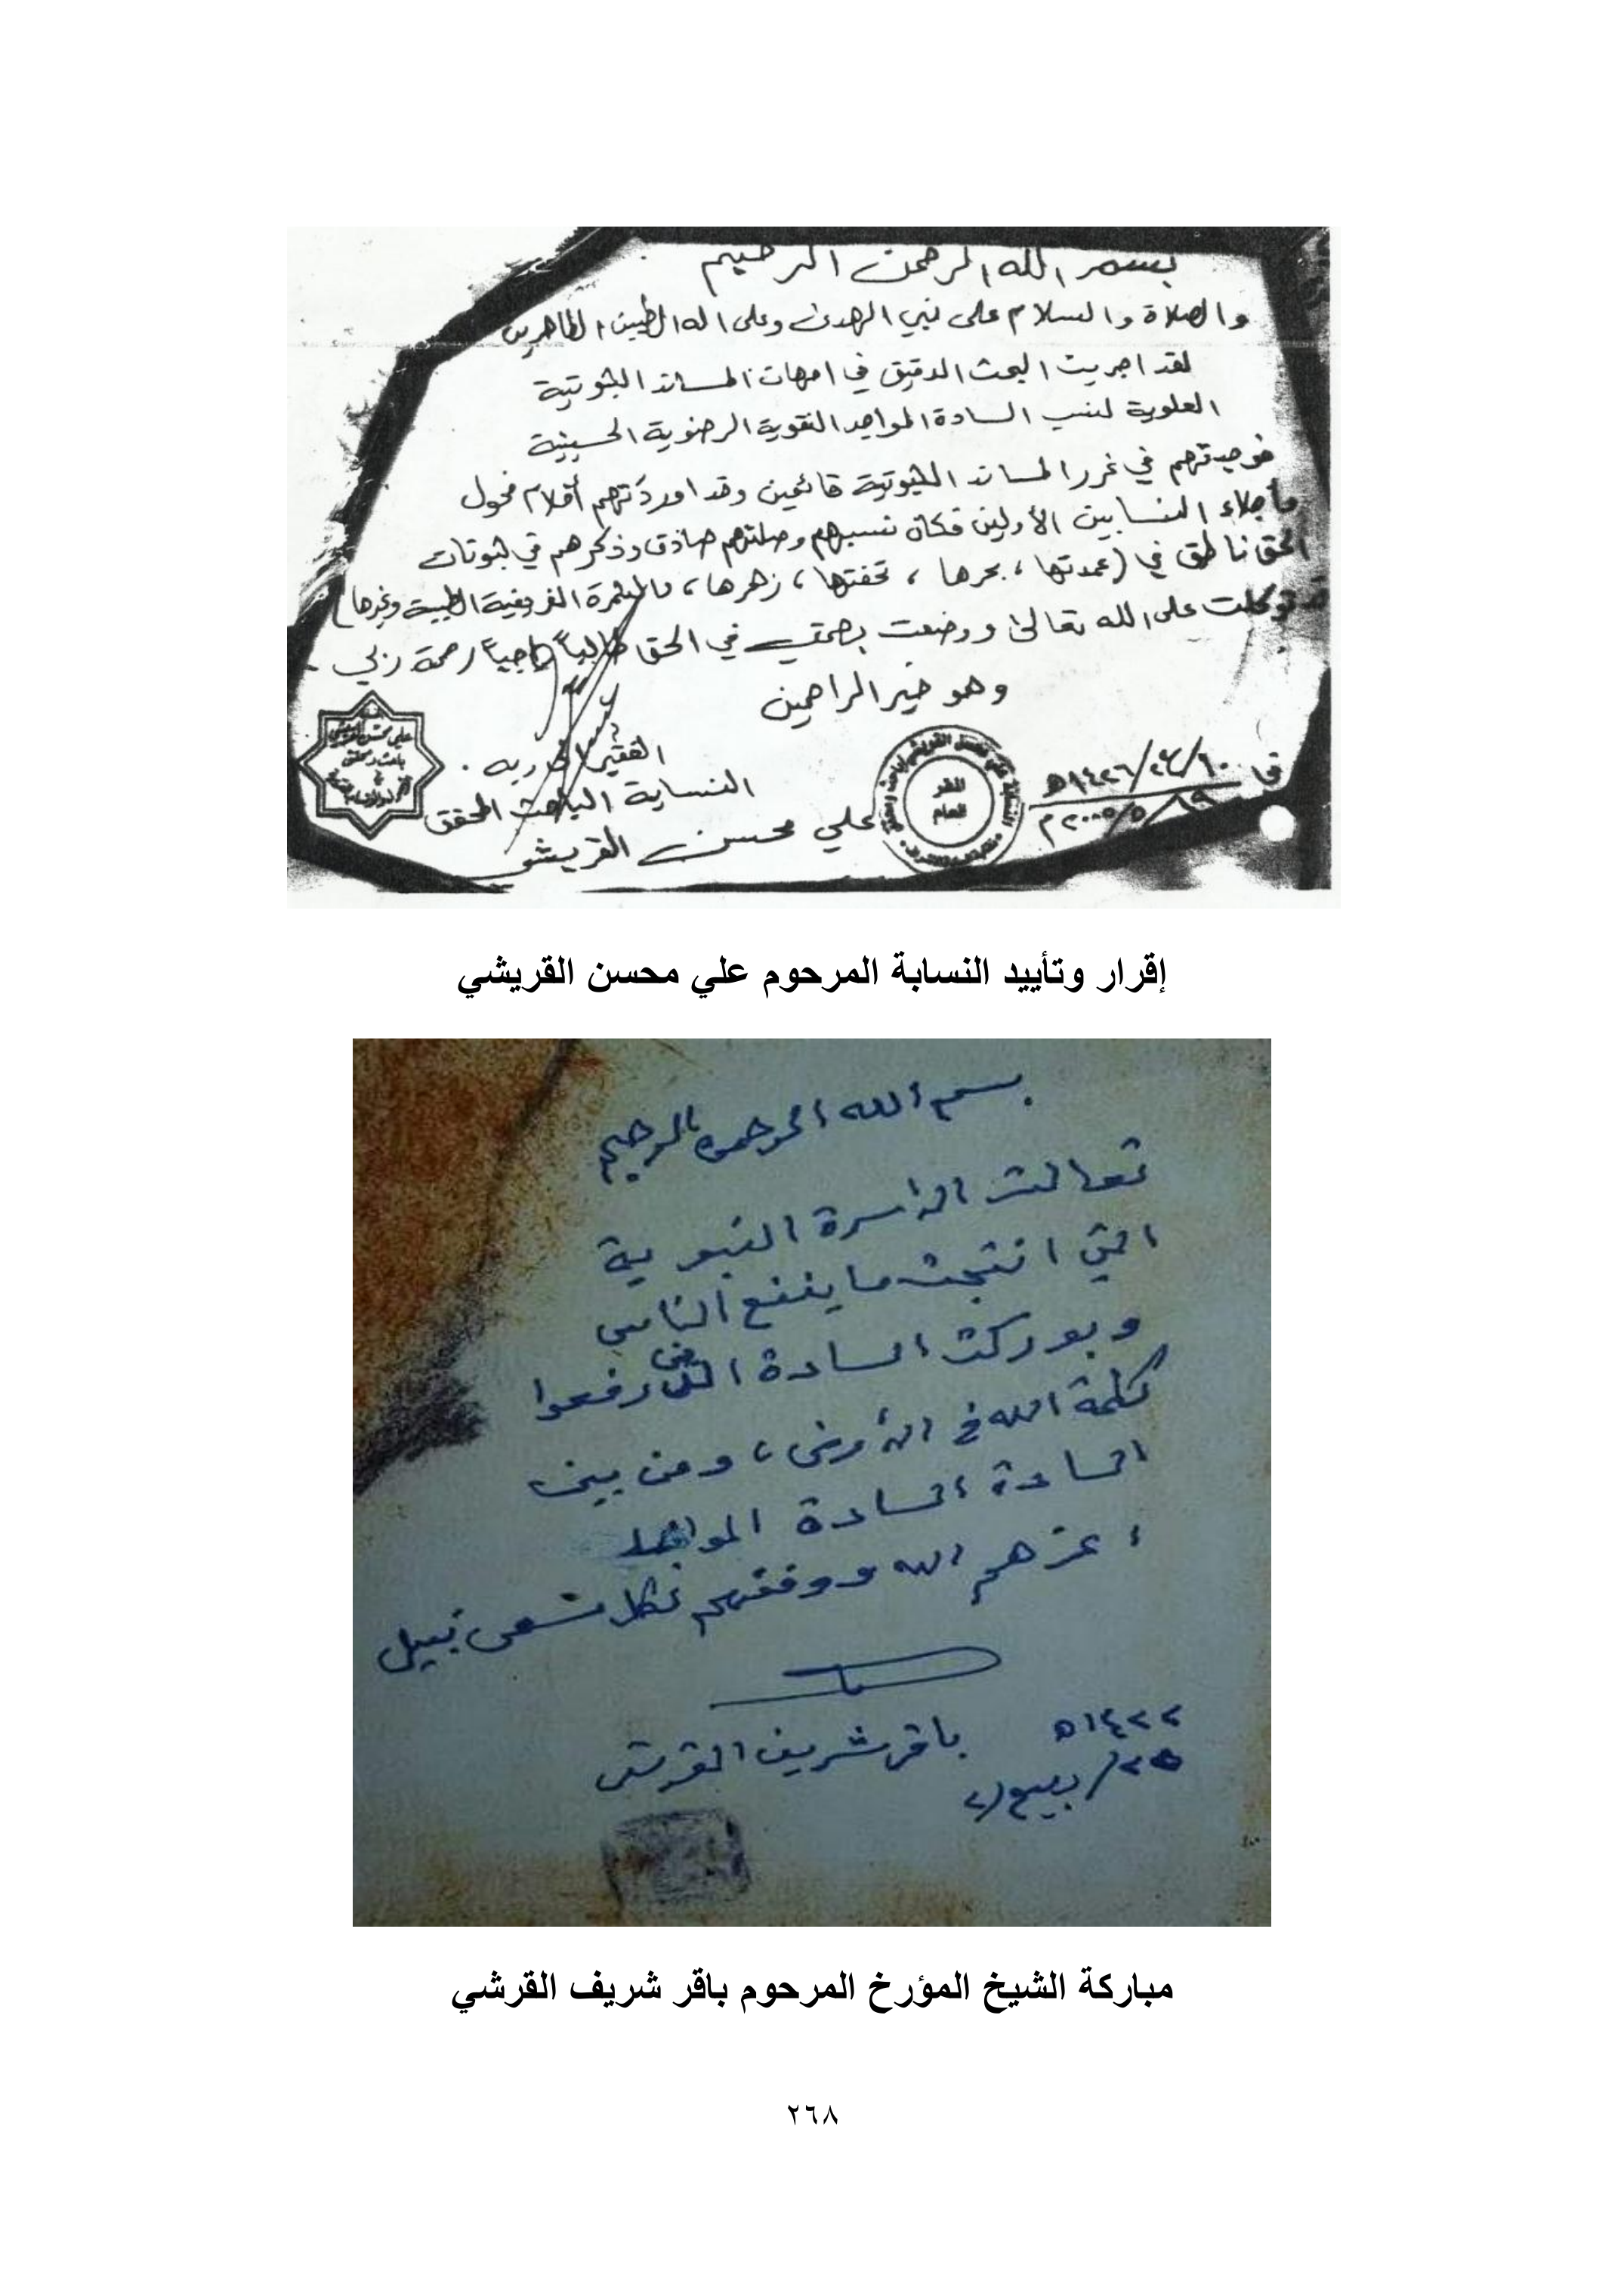 بسم الله الرحمن الرحيم
والصلاة والسلام على نبي الهدى وعلى اله الطيبين الطاهرين
لقد اجريت البحث الدقيق في امهات المساند الثبوتية
العلوية لنسب السادة المواجد النقوية الرضوية الحسينية
فوجدتهم في غرر المساند الثبوتية قائمين وقد اوردتهم أقلام فحول
وأجلاء النسابين الأولين فكان نسبهم وصلتهم صادق وذكرهم في ثبوتات
الحق ناطق في (عمدتها، بحرها، تحفتها، زهرها، والطيبة وغيرها)
توكلت على الله تعالى ووضعت بصمتي في الحق طالباً راجياً رحمة ربي
وهو خير الراحمين
الفقير الى ربه
النسابة الباحث المحقق
علي محسن القريشي
في
١٤٢٦هـ
٢٠٠٥/٥/م
إقرار وتأييد النسابة المرحوم علي محسن القريشي
بسم الله الرحمن الرحيم
تعالت الاسرة النبوية
التي انتجت ما ينفع الناس
وبوركت السادة رفعوا
كلمة الله في الأرض، ومن بين
السادة السادة المواجد
أعزهم الله ووفقهم لكل مسعى نبيل
باقر شريف القرشي
١٤٢٢هـ
٢٥/ربيع/٢
مباركة الشيخ المؤرخ المرحوم باقر شريف القرشي
٢٦٨